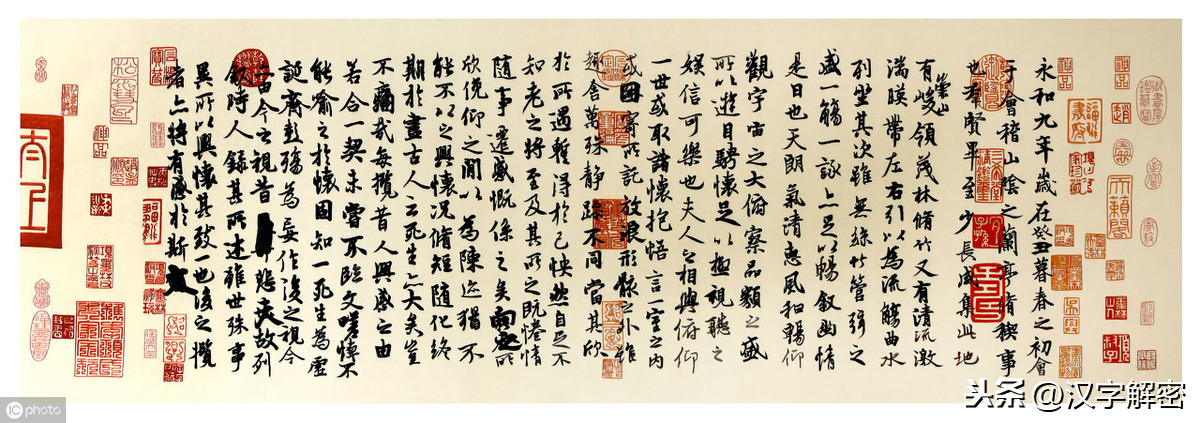 永和九年歲在癸丑暮春之初會
于會稽山陰之蘭亭脩稧事
也羣賢畢至少長咸集此地
有崇山峻領茂林脩竹又有清流激
湍暎帶左右引以為流觴曲水
列坐其次雖無絲竹管弦之
盛一觴一詠亦足以暢叙幽情
是日也天朗氣清惠風和暢仰
觀宇宙之大俯察品類之盛
所以遊目騁懷足以極視聽之
娛信可樂也夫人之相與俯仰
一世或取諸懷抱悟言一室之內
或因寄所託放浪形骸之外雖
趣舍萬殊靜躁不同當其欣
於所遇暫得於己怏然自足不
知老之將至及其所之既惓情
隨事遷感慨係之矣向之所
欣俛仰之間以為陳迹猶不
能不以之興懷況脩短隨化終
期於盡古人云死生亦大矣豈
不痛哉每攬昔人興感之由
若合一契未嘗不臨文嗟悼不
能喻之於懷固知一死生為虛
誕齊彭殤為妄作後之視今
亦由今之視昔悲夫故列
敘時人錄其所述雖世殊事
異所以興懷其致一也後之攬
者亦將有感於斯文
iC photo
头条 @汉字解密